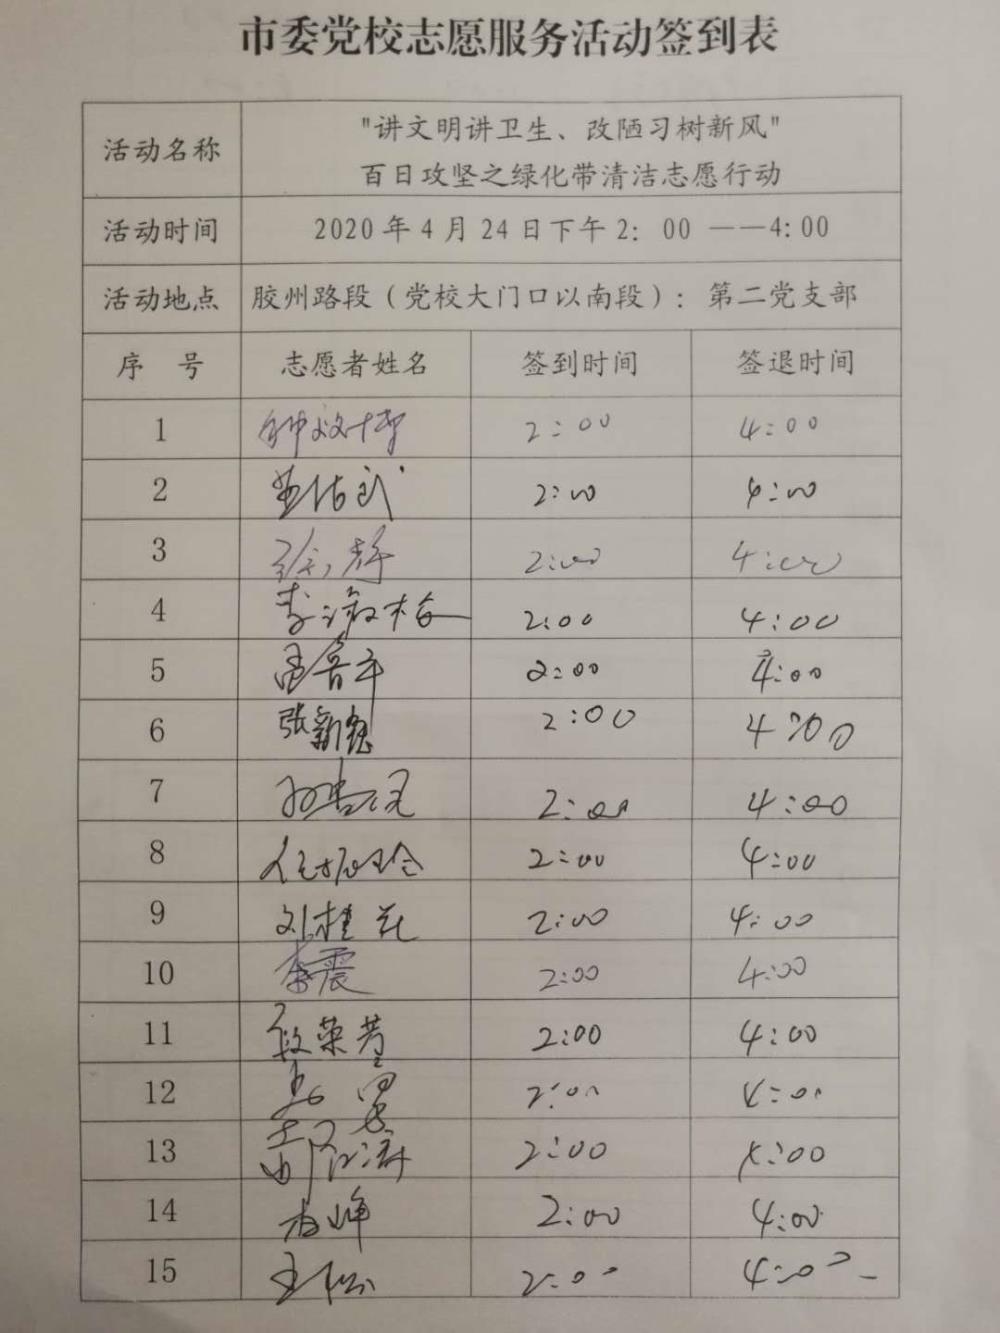 市委党校志愿服务活动签到表
活动名称
"讲文明讲卫生、改陋习树新风"
百日攻坚之绿化带清洁志愿行动
活动时间 2020年4月24日下午2：00 ——4：00
活动地点 胶州路段（党校大门口以南段）：第二党支部
序 号 志愿者姓名 签到时间 签退时间
1 2:00 4:00
2 2:00 4:00
3 2:00 4:00
4 李淑梅 2:00 4:00
5 2:00 4:00
6 张新 2:00 4:00
7 2:00 4:00
8 2:00 4:00
9 刘桂花 2:00 4:00
10 李震 2:00 4:00
11 段荣芳 2:00 4:00
12 2:00 4:00
13 2:00 4:00
14 2:00 4:00
15 2:00 4:00